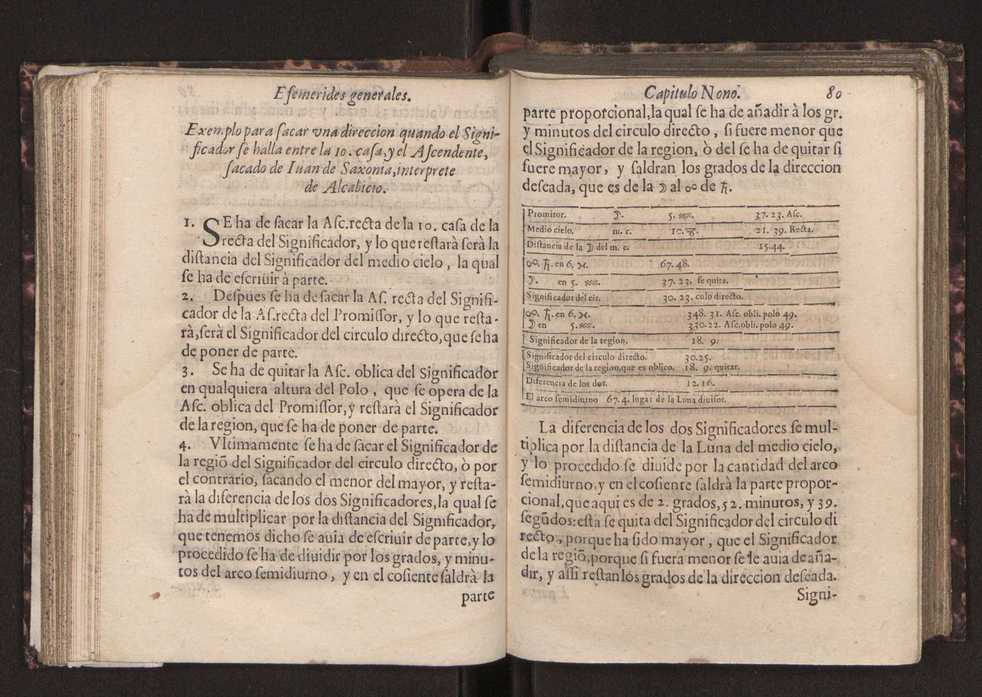 Efemerides generales.
Exemplo para sacar vna direccion quando el Signi-
ficador se halla entre la 10. casa, y el Ascendente,
sacado de Iuan de Saxonia, interprete
de Alcabicio.
1. SE ha de sacar la Asc. recta de la 10. casa de la
recta del Significador, y lo que restarà serà la
distancia del Significador del medio cielo, la qual
se ha de escriuir à parte.
2. Despues se ha de sacar la As. recta del Signifi-
cador de la As.recta del Promissor, y lo que resta-
rà, serà el Significador del circulo directo, que se ha
de poner de parte.
3. Se ha de quitar la Asc. oblica del Significador
en qualquiera altura del Polo, que se opera de la
Asc. oblica del Promissor, y restarà el Significador
de la region, que se ha de poner de parte.
4. Vltimamente se ha de sacar el Significador de
la regiõ del Significador del circulo directo, ò por
el contrario, sacando el menor del mayor, y resta-
rà la diferencia de los dos Significadores, la qual se
ha de multiplicar por la distancia del Significador,
que tenemos dicho se auia de escriuir de parte, y lo
procedido se ha de diuidir por los grados, y minu-
tos del arco semidiurno, y en el cosiente saldrà la
parte
Capitulo Nono. 80
parte proporcional, la qual se ha de añadir à los gr.
y minutos del circulo directo, si fuere menor que
el Significador de la region, ò del se ha de quitar si
fuere mayor, y saldran los grados de la direccion
deseada, que es de la ☽ al ☍ de ♄.
Promitor. ☽. 5. ♒. 37. 23. Asc.
Medio cielo. m. c. 10. ♑. 21. 39. Recta.
Distancia de la ☽ del m. c. 15.44.
☍. ♄. en 6. ♓. 67. 48.
☽. en 5. ♒. 37. 23. se quita.
Significador del cir. 30. 23. culo directo.
☍. ♄. en 6. ♓. 348. 31. Asc. obli. polo 49.
☽ en 5. ♒. 330. 22. Asc. obli. polo 49.
Significador de la region. 18. 9.
Significador del circulo directo. 30.25.
Significador de la region, que es oblico. 18. 9. quitar.
Diferencia de los dos. 12. 16.
El arco semidiurno 67. 4. lugar de la Luna diuisor.
La diferencia de los dos Significadores se mul-
tiplica por la distancia de la Luna del medio cielo,
y lo procedido se diuide por la cantidad del arco
semidiurno, y en el cosiente saldrà la parte propor-
cional, que aqui es de 2. grados, 52. minutos, y 39.
segũdos: esta se quita del Significador del circulo di
recto, porque ha sido mayor, que el Significador
de la regiõ, porque si fuera menor se le auia de aña-
dir, y assi restan los grados de la direccion deseada.
Signi-